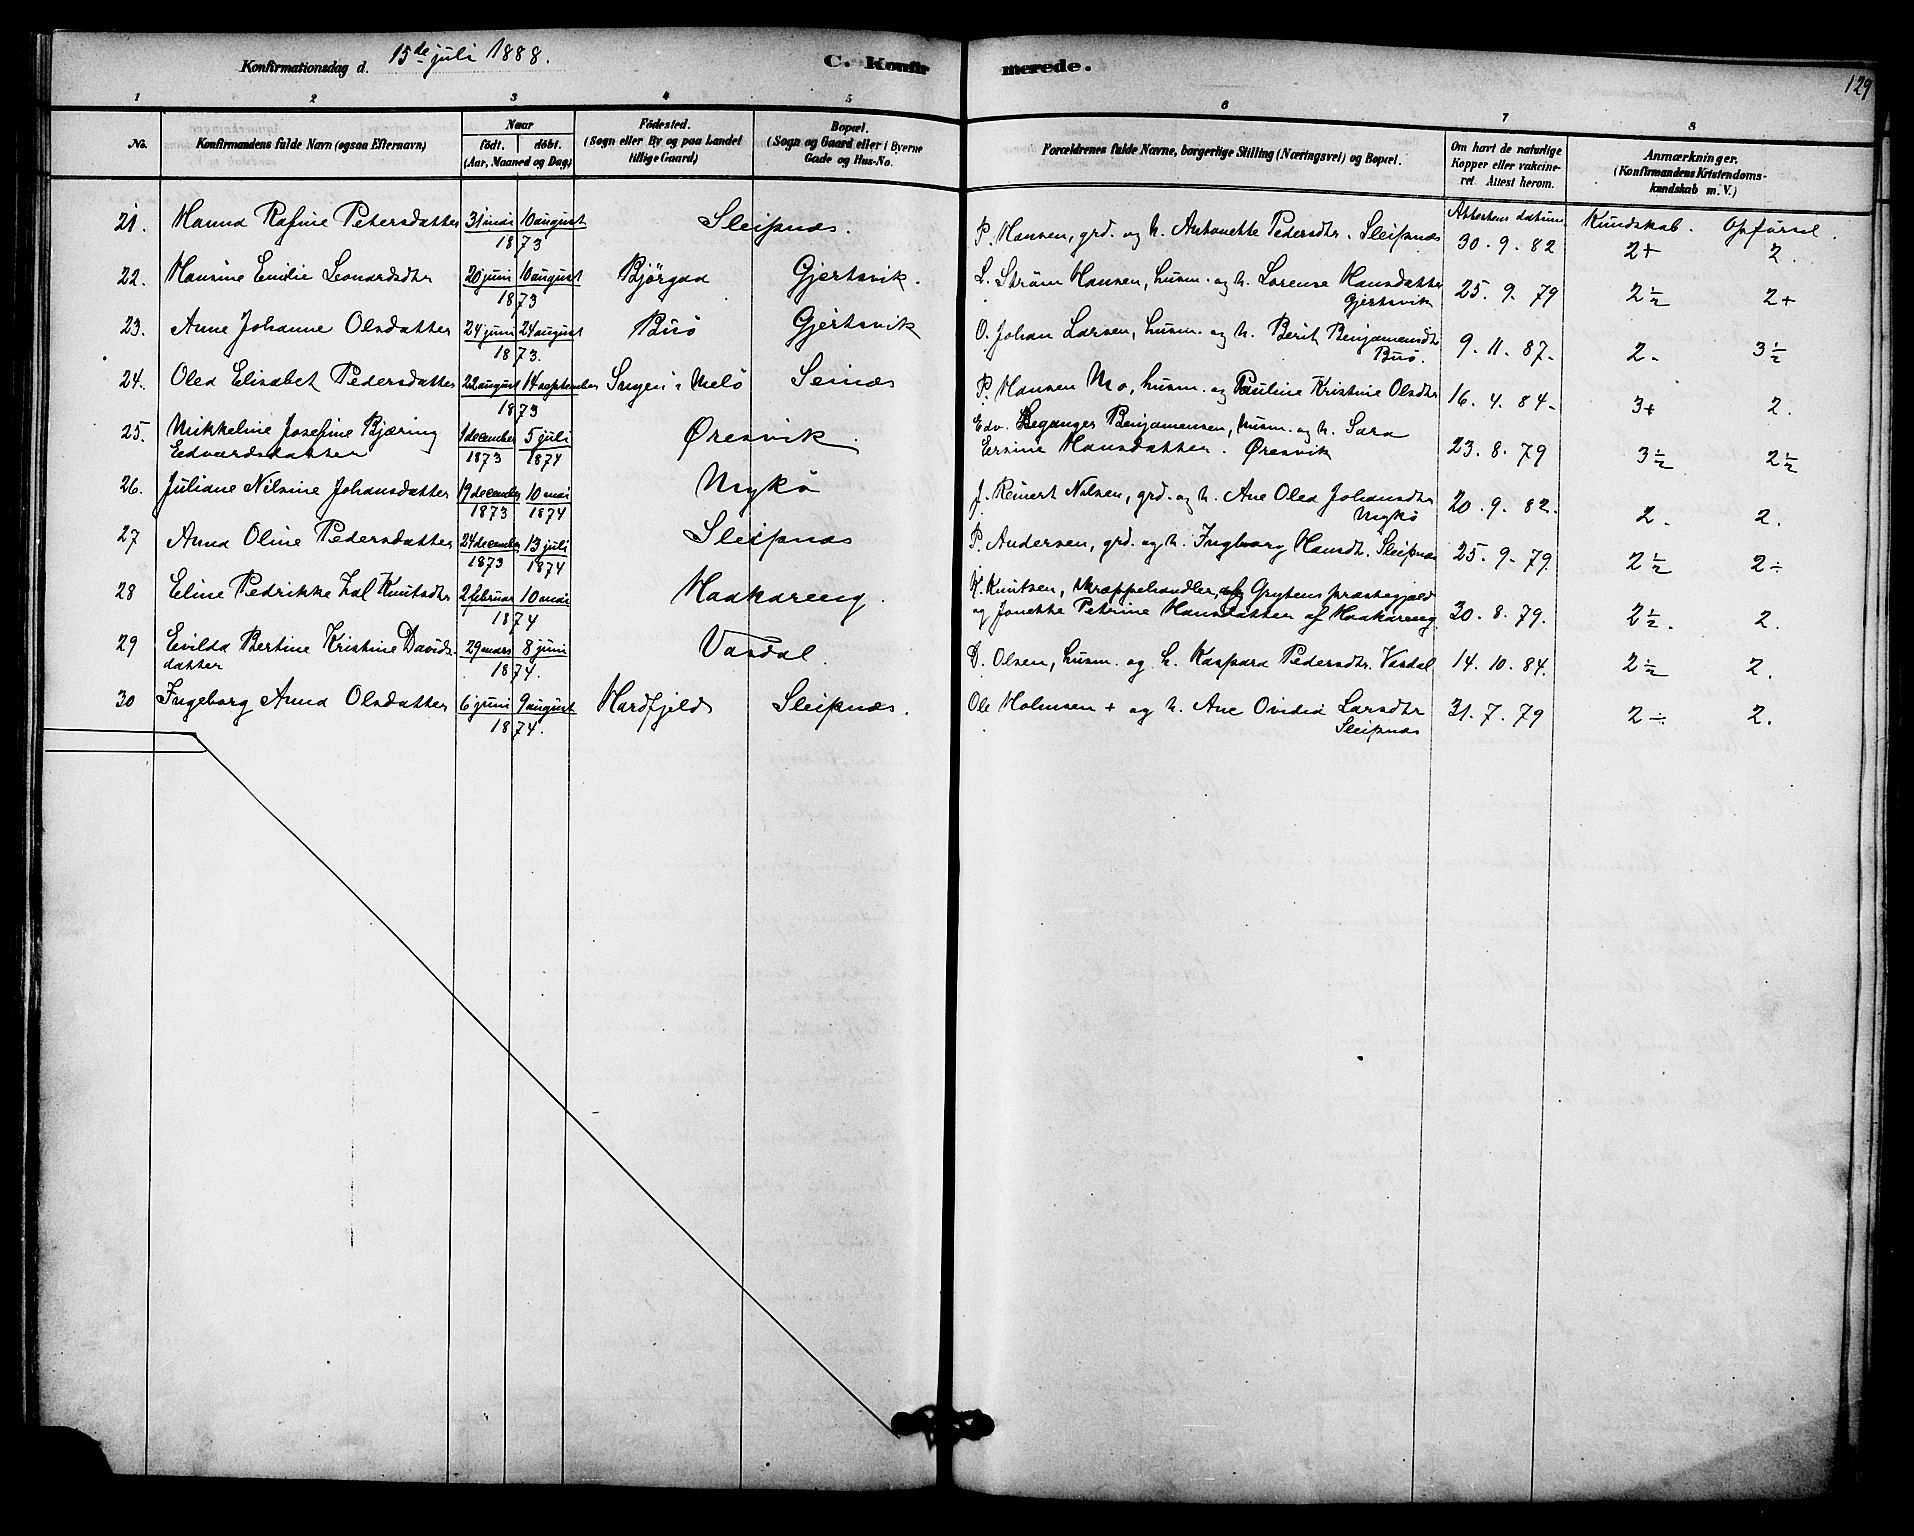 Konfirmationsdag d. 15de juli 1888. C. Konfirmerede. 129
1 2 3 4 5 6 7 8
No. Konfirmandens fulde Navn (ogsaa Efternavn) Naar födt. döbt. (Aar, Maaned og Dag) Födested. (Sogn eller By og paa Landet tillige Gaard) Bopæl. (Sogn og Gaard eller i Byerne Gade og Hus-No. Forældrenes fulde Navne, borgerlige Stilling (Næringsvei) og Bopæl. Om havt de naturlige Kopper eller vakcineret. Attest herom. Anmærkninger. (Konfirmandens Kristendomskundskab m. V.)
Attestens datum Kundskab. Opførsel.
21. Hanna Rafine Petersdatter 31 mai 10 august 1873 Sleipnæs. P. Hansen, grd. og h. Antonette Pedersdtr. Sleipnæs 30. 9. 82 2+ 2.
22. Hansine Emilie Leonardsdtr 20 juni 10 august 1873 Bjørgaa Gjertsvik. L. Strøm Hansen, husm. og h. Lorense Hansdatter Gjertsvik 25. 9. 79 2½ 2+
23. Anne Johanne Olsdatter 24 juni 24 august 1873. Buø Gjertsvik O. Johan Larsen, husm. og h. Berit Benjamensdtr Buø. 9. 11. 87. 2- 3½
24. Olea Elisabet Pedersdatter 22 august 14 september 1873 i Melø Seinæs P. Hansen Mo, husm. og Pauline Kristine Olsdtr 16. 4. 84- 3+ 2.
25. Mikkeline Josefine Bjæring Edvardsdatter 1 december 1873 5 juli 1874 Øresvik. Edv. Benjamensen, husm. og h. Sara Ersine Hansdatter. Øresvik 23. 8. 79 3½ 2½
26. Juliane Nilsine Johansdatter 19 december 1873 10 mai 1874 Mykø J. Reinert Nilsen, grd. og h. Ane Olea Johansdtr Mykø 20. 9. 82. 2. 2.
27 Anna Oline Pedersdatter 24 december 1873 13 juli 1874 Sleipnæs P. Andersen, grd. og h. Ingborg Hansdt. Sleipnæs 25. 9. 79. 2½ 2÷
28 Eline Pedrikke Zal Knutsdtr 2 februar 10 mai 1874 Haakareng. K. Knutsen, skræppehandler, af Grytens præstegjæld
og Jonette Petrine Hansdatter af Haakareng. 30. 8. 79. 2½. 2.
29 Evilda Bertine Kristine Davidsdatter 29 mars 8 juni 1874. Vasdal. D. Olsen, husm. og h. Kaspara Pedersdtr. Vasdal 14. 10. 84. 2½ 2.
30 Ingeborg Anna Olsdatter 6 juni 9 august 1874. Hardfjeld Sleipnæs. Ole Holmsen + og h. Ane Ovidia Larsdtr Sleipnæs 31. 7. 79 2÷ 2.